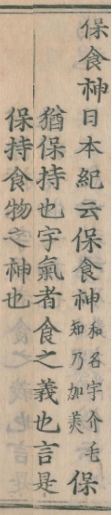 保食神日本紀云保食神和名宇介毛知乃加美保
猶保持也宇氣者食之義也言是
保持食物之神也